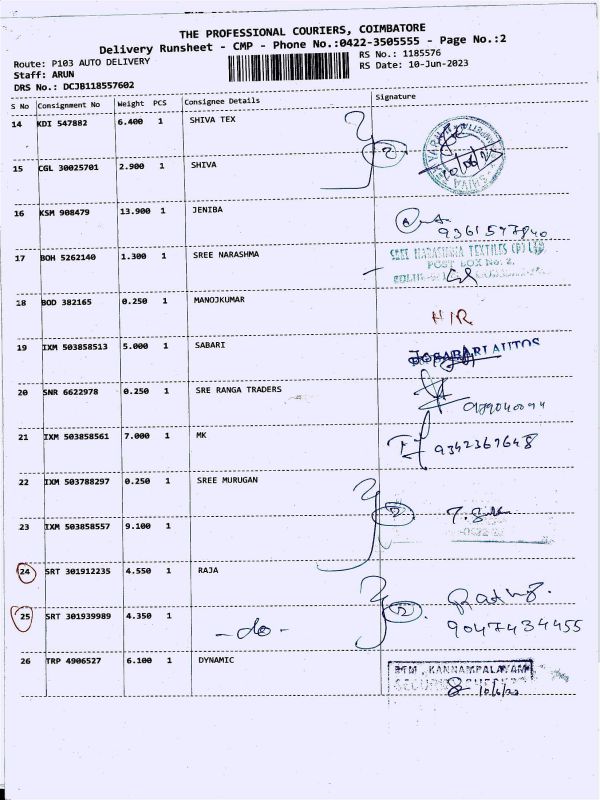 THE PROFESSIONAL COURIERS, COIMBATORE
Delivery Runsheet - CMP - Phone No.:0422-3505555 - Page No.:2
Route: P103 AUTO DELIVERY
RS No.: 1185576
Staff: ARUN
RS Date: 10-Jun-2023
DRS No.: DCJB118557602
S No Consignment No Weight PCS Consignee Details Signature
14 KDI 547882 6.400 1 SHIVA TEX
2
15 CGL 30025701 2.900 1 SHIVA
16 KSM 908479 13.900 1 JENIBA
17 BOH 5262140 1.300 1 SREE NARASHMA
SREE NARASIMHA TEXTILES (P) LTD
POST BOX No: 2,
18 BOD 382165 0.250 1 MANOJKUMAR
N/R
19 IXM 503858513 5.000 1 SABARI
20 SNR 6622978 0.250 1 SRE RANGA TRADERS
21 IXM 503858561 7.000 1 MK
9342367648
22 IXM 503788297 0.250 1 SREE MURUGAN
2
23 IXM 503858557 9.100 1
24 SRT 301912235 4.550 1 RAJA
2
25 SRT 301939989 4.350 1 -do-
9047434455
26 TRP 4906527 6.100 1 DYNAMIC
KANNAMPALAYAM